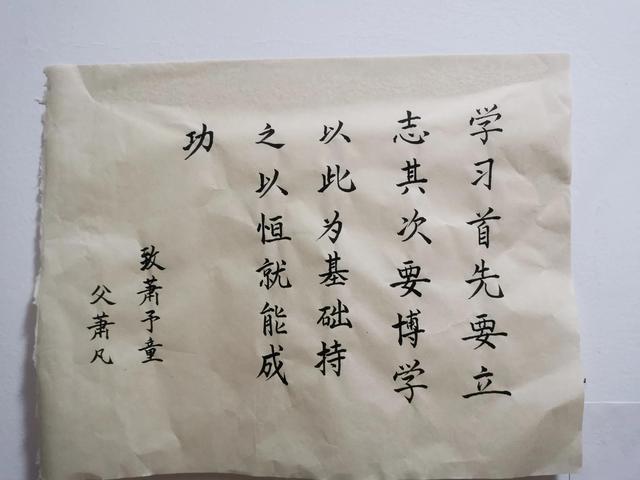 学习首先要立
志其次要博学
以此为基础持
之以恒就能成
功
致萧予童
父萧凡